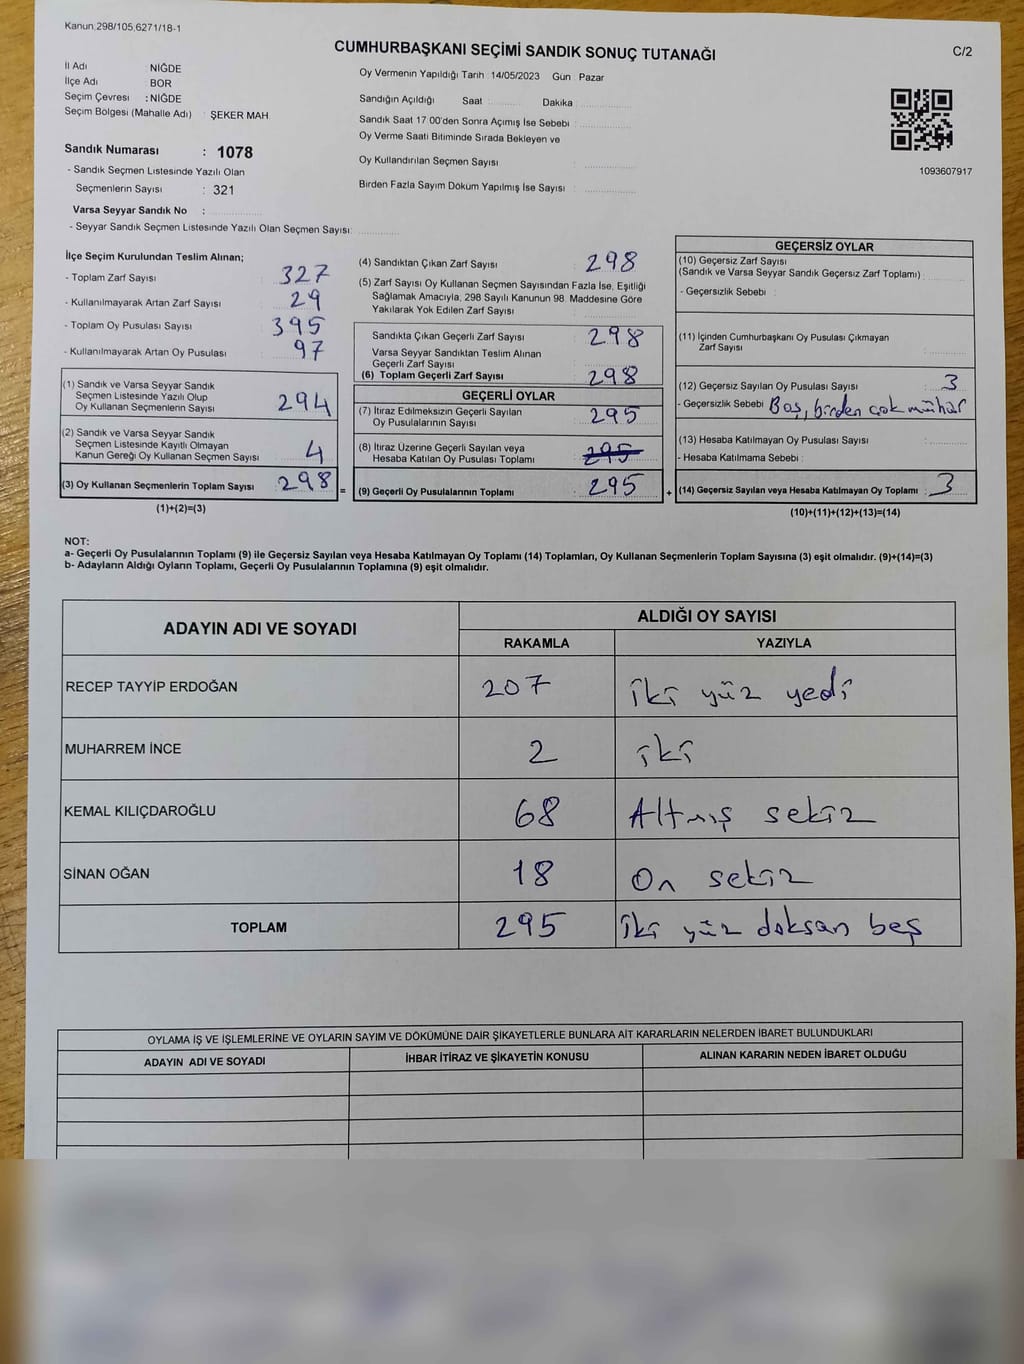 Kanun 298/105,6271/18-1
CUMHURBAŞKANI SEÇİMİ SANDIK SONUÇ TUTANAĞI
C/2
İl Adı : NİĞDE
İlçe Adı : BOR
Seçim Çevresi : NİĞDE
Seçim Bölgesi (Mahalle Adı) : ŞEKER MAH
Sandık Numarası : 1078
- Sandık Seçmen Listesinde Yazılı Olan
Seçmenlerin Sayısı : 321
Varsa Seyyar Sandık No :
- Seyyar Sandık Seçmen Listesinde Yazılı Olan Seçmen Sayısı:
Oy Vermenin Yapıldığı Tarih 14/05/2023 Gün Pazar
Sandığın Açıldığı Saat Dakika
Sandık Saat 17 00'den Sonra Açımış İse Sebebi
Oy Verme Saati Bitiminde Sırada Bekleyen ve
Oy Kullandırılan Seçmen Sayısı
Birden Fazla Sayım Döküm Yapılmış İse Sayısı
1093607917
İlçe Seçim Kurulundan Teslim Alınan;
- Toplam Zarf Sayısı 327
- Kullanılmayarak Artan Zarf Sayısı 29
- Toplam Oy Pusulası Sayısı 395
- Kullanılmayarak Artan Oy Pusulası 97
(1) Sandık ve Varsa Seyyar Sandık
Seçmen Listesinde Yazılı Olup
Oy Kullanan Seçmenlerin Sayısı 294
(2) Sandık ve Varsa Seyyar Sandık
Seçmen Listesinde Kayıtlı Olmayan
Kanun Gereği Oy Kullanan Seçmen Sayısı 4
(3) Oy Kullanan Seçmenlerin Toplam Sayısı : 298 =
(1)+(2)=(3)
(4) Sandıktan Çıkan Zarf Sayısı 298
(5) Zarf Sayısı Oy Kullanan Seçmen Sayısından Fazla İse, Eşitliği
Sağlamak Amacıyla, 298 Sayılı Kanunun 98. Maddesine Göre
Yakılarak Yok Edilen Zarf Sayısı
Sandıkta Çıkan Geçerli Zarf Sayısı 298
Varsa Seyyar Sandıktan Teslim Alınan
Geçerli Zarf Sayısı
(6) Toplam Geçerli Zarf Sayısı 298
GEÇERLİ OYLAR
(7) İtiraz Edilmeksizin Geçerli Sayılan
Oy Pusulalarının Sayısı 295
(8) İtiraz Üzerine Geçerli Sayılan veya
Hesaba Katılan Oy Pusulası Toplamı 295
(9) Geçerli Oy Pusulalarının Toplamı 295 +
GEÇERSİZ OYLAR
(10) Geçersiz Zarf Sayısı
(Sandık ve Varsa Seyyar Sandık Geçersiz Zarf Toplamı)
- Geçersizlik Sebebi :
(11) İçinden Cumhurbaşkanı Oy Pusulası Çıkmayan
Zarf Sayısı
(12) Geçersiz Sayılan Oy Pusulası Sayısı 3
- Geçersizlik Sebebi Boş, birden çok mühür
(13) Hesaba Katılmayan Oy Pusulası Sayısı
- Hesaba Katılmama Sebebi :
(14) Geçersiz Sayılan veya Hesaba Katılmayan Oy Toplamı : 3
(10)+(11)+(12)+(13)=(14)
NOT:
a- Geçerli Oy Pusulalarının Toplamı (9) ile Geçersiz Sayılan veya Hesaba Katılmayan Oy Toplamı (14) Toplamları, Oy Kullanan Seçmenlerin Toplam Sayısına (3) eşit olmalıdır. (9)+(14)=(3)
b- Adayların Aldığı Oyların Toplamı, Geçerli Oy Pusulalarının Toplamına (9) eşit olmalıdır.
ADAYIN ADI VE SOYADI
ALDIĞI OY SAYISI
RAKAMLA YAZIYLA
RECEP TAYYİP ERDOĞAN 207 iki yüz yedi
MUHARREM İNCE 2 iki
KEMAL KILIÇDAROĞLU 68 Altmış sekiz
SİNAN OĞAN 18 On sekiz
TOPLAM 295 iki yüz doksan beş
OYLAMA İŞ VE İŞLEMLERİNE VE OYLARIN SAYIM VE DÖKÜMÜNE DAİR ŞİKAYETLERLE BUNLARA AİT KARARLARIN NELERDEN İBARET BULUNDUKLARI
ADAYIN ADI VE SOYADI İHBAR İTİRAZ VE ŞİKAYETİN KONUSU ALINAN KARARIN NEDEN İBARET OLDUĞU